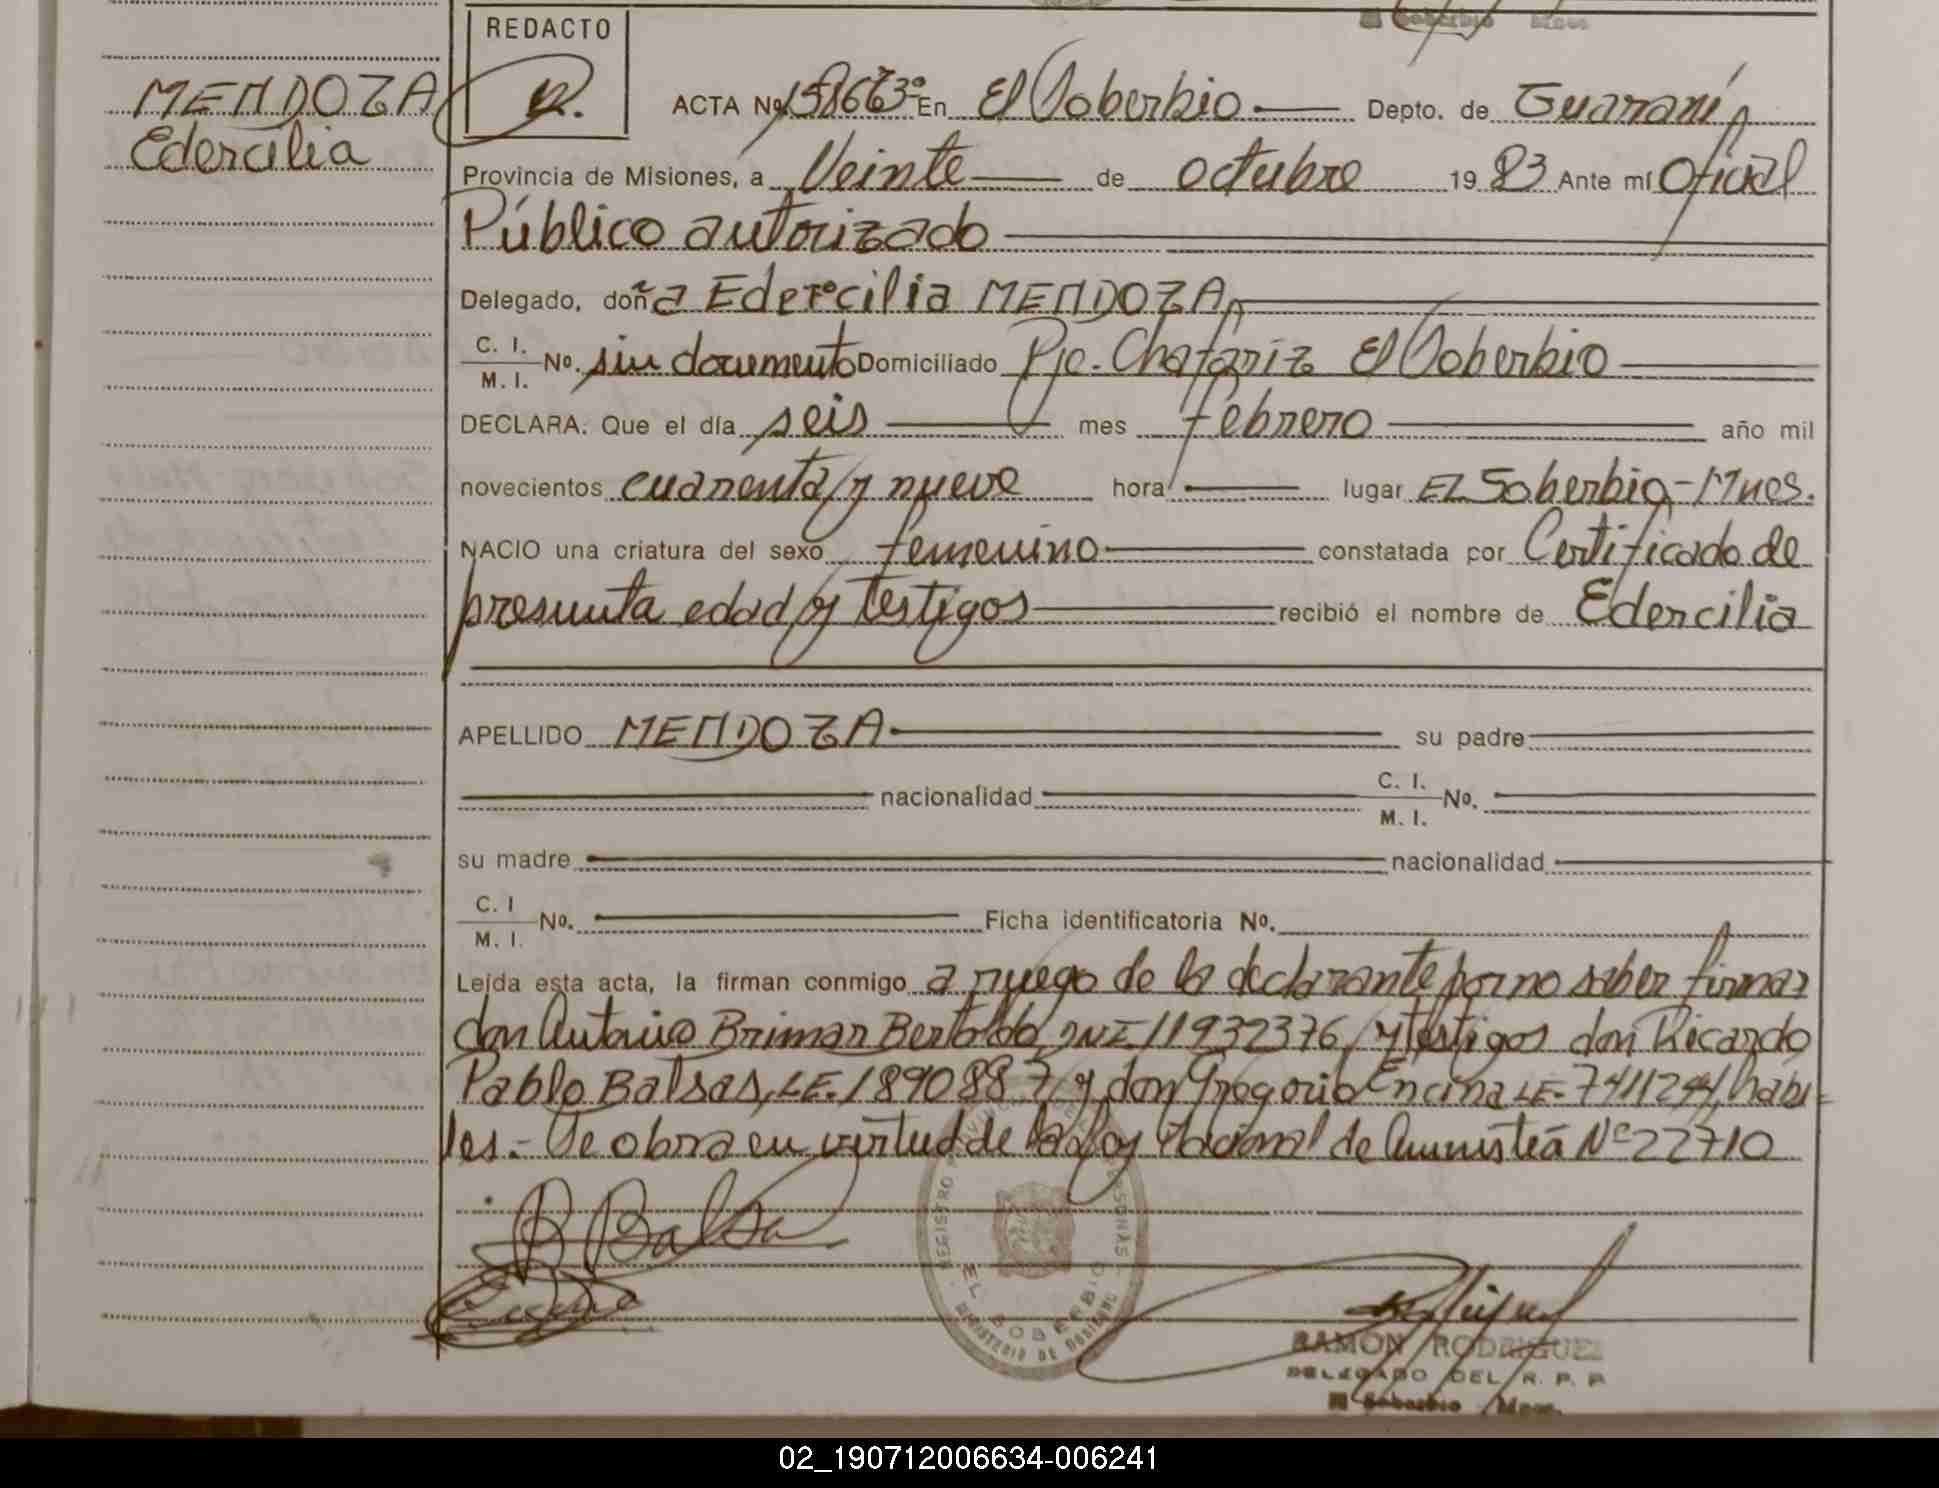 REDACTO
MENDOZA
Edercilia
ACTA Nº 158663º En El Soberbio Depto. de Guaraní
Provincia de Misiones, a Veinte de octubre 19 83 Ante mí Oficial
Público autorizado
Delegado, doña Edercilia MENDOZA
C. I.
M. I. Nº. sin documento Domiciliado Pje. Chafariz El Soberbio
DECLARA: Que el día seis mes febrero año mil
novecientos cuarenta y nueve hora lugar El Soberbio-Mnes.
NACIO una criatura del sexo femenino constatada por Certificado de
presunta edad y testigos recibió el nombre de Edercilia
APELLIDO MENDOZA su padre
nacionalidad C. I.
M. I. Nº.
su madre nacionalidad
C. I
M. I. Nº. Ficha identificatoria Nº.
Leída esta acta, la firman conmigo a ruego de la declarante por no saber firmar
don Antonio Brimar Bertoldo, DNI 11932376, y testigos don Ricardo
Pablo Balsas, LE. 1890887 y don Gregorio Encina LE- 7411244, hábi-
les.- Se obra en virtud de la Ley Nacional de Amnistía Nº 22710
R Balsa
REGISTRO PROVINCIAL PERSONAS
EL SOBERBIO
MINISTERIO DE GOBIERNO
RAMON RODRIGUEZ
DELEGADO DEL R. P. P.
El Soberbio Mnes.
02_190712006634-006241